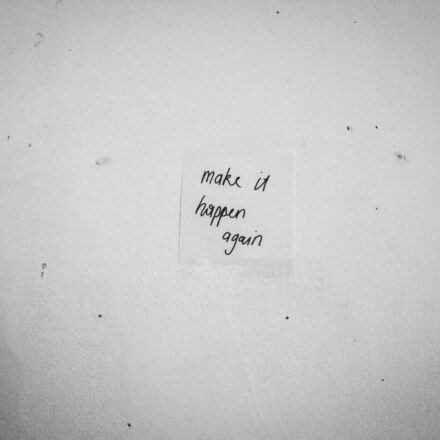 make it
happen
again